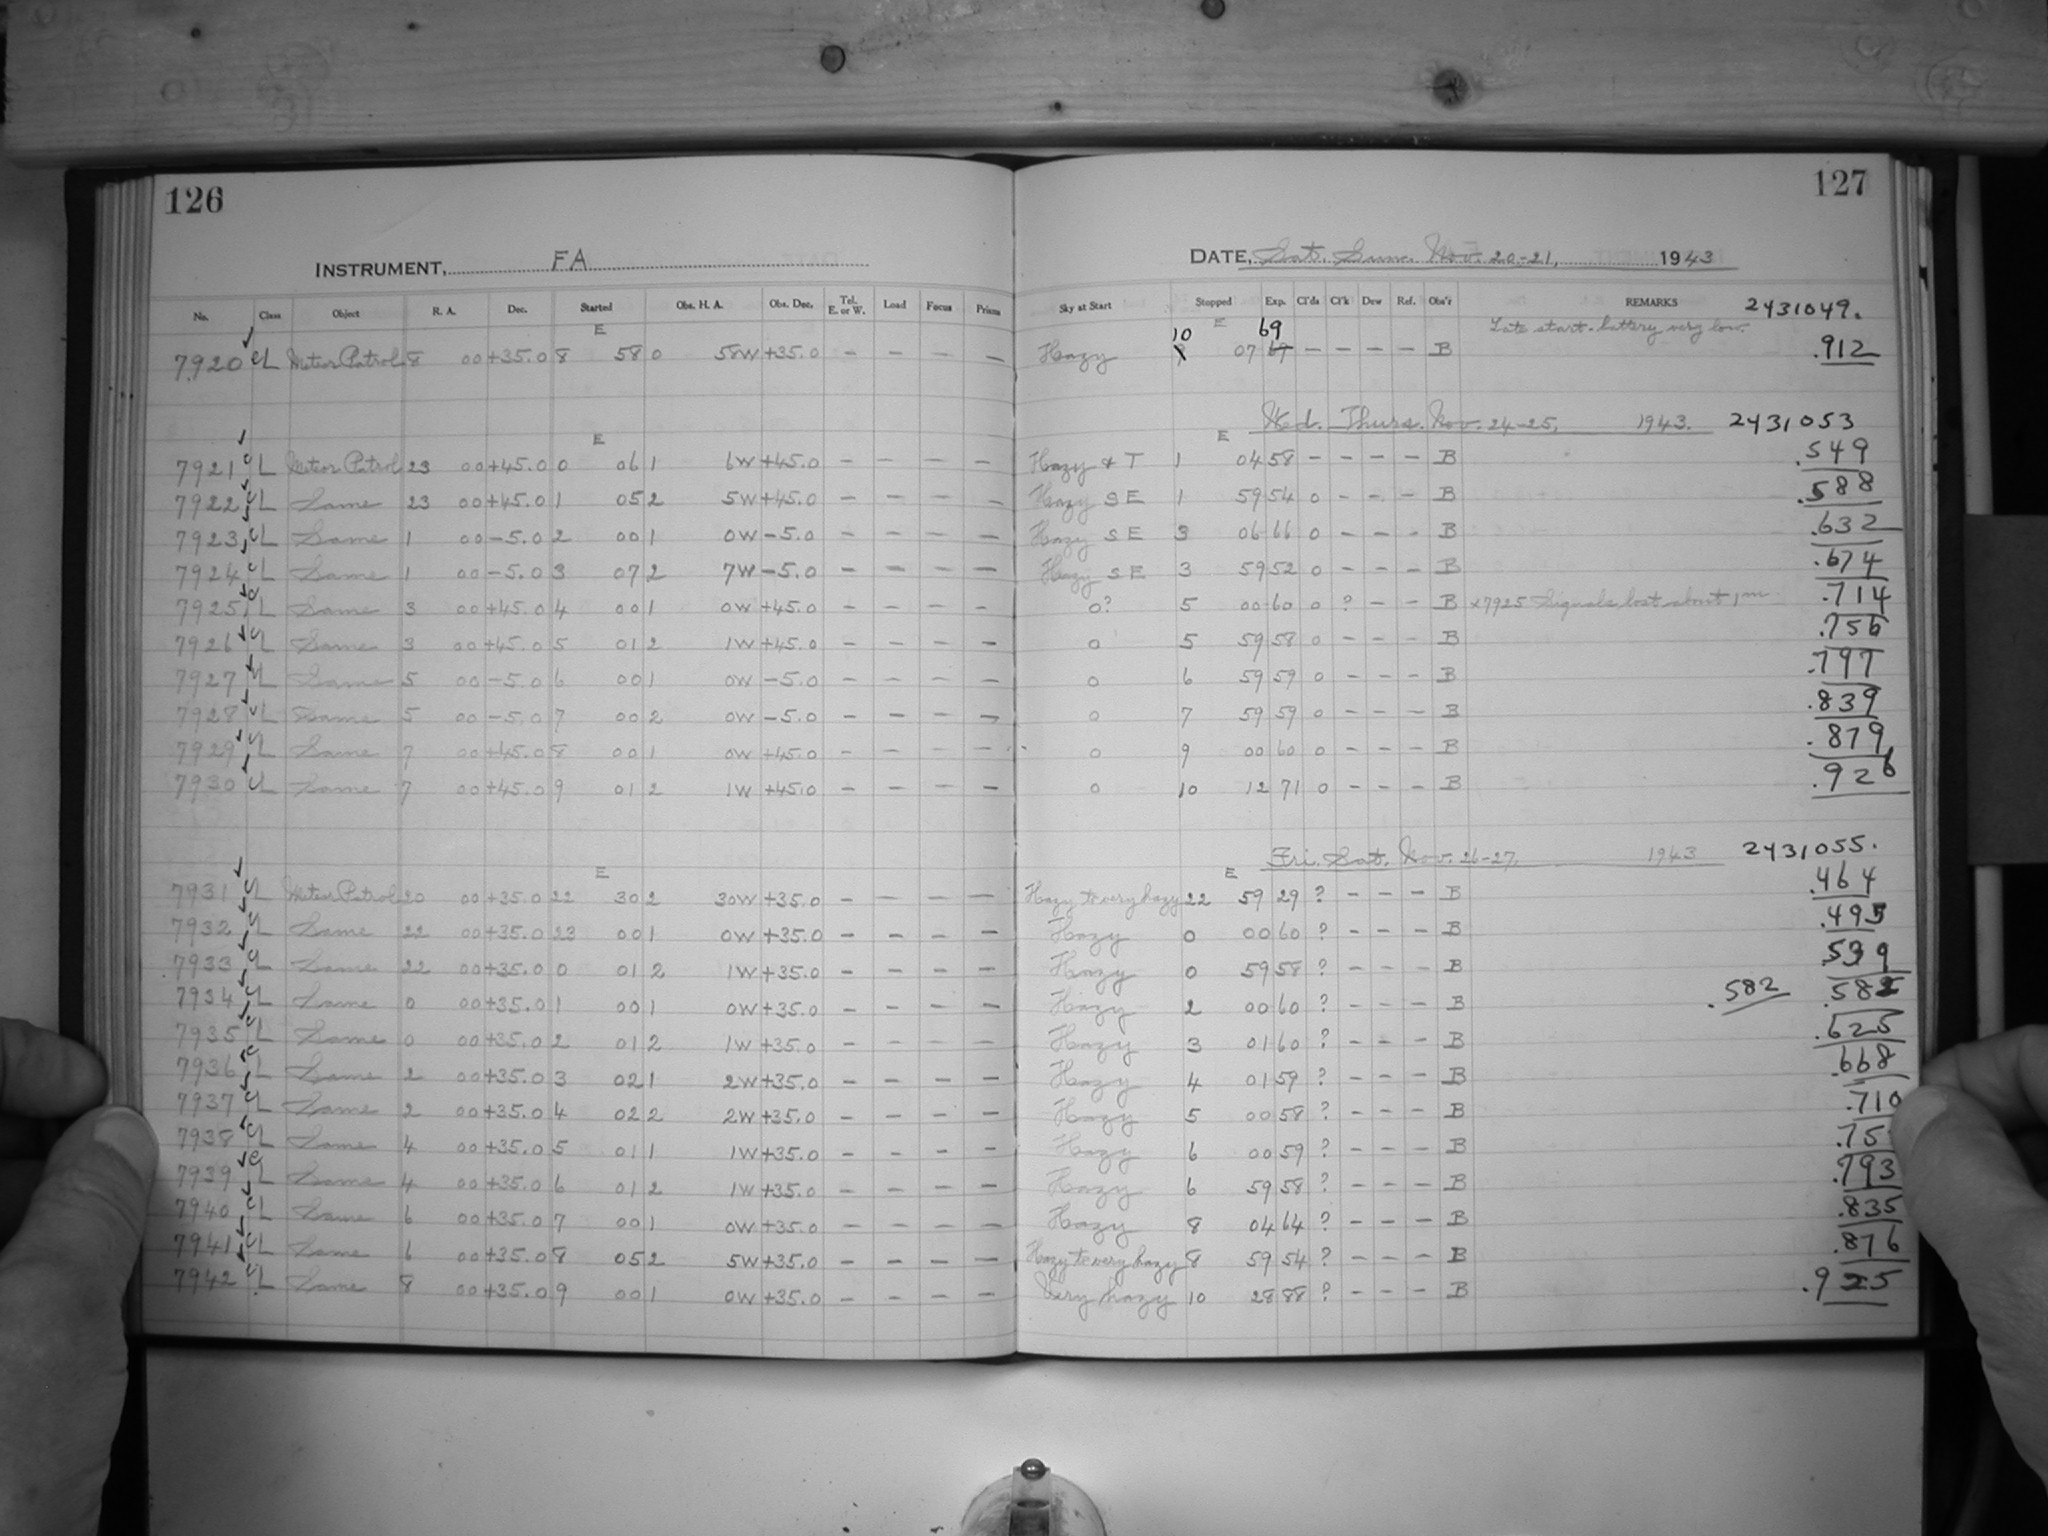 126
INSTRUMENT, FA
No. Class Object R. A. Dec. Started Obs. H. A. Obs. Dec. Tel. E. or W. Load Focus Prism
E
7920 L Meteor Patrol 8 00 +35.0 8 58 0 58W +35.0 - - - -
E
7921 L Meteor Patrol 23 00 +45.0 0 06 1 6W +45.0 - - - -
7922 L Same 23 00 +45.0 1 05 2 5W +45.0 - - - -
7923 L Same 1 00 -5.0 2 00 1 0W -5.0 - - - -
7924 L Same 1 00 -5.0 3 07 2 7W -5.0 - - - -
7925 L Same 3 00 +45.0 4 00 1 0W +45.0 - - - -
7926 L Same 3 00 +45.0 5 01 2 1W +45.0 - - - -
7927 L Same 5 00 -5.0 6 00 1 0W -5.0 - - - -
7928 L Same 5 00 -5.0 7 00 2 0W -5.0 - - - -
7929 L Same 7 00 +45.0 8 00 1 0W +45.0 - - - -
7930 L Same 7 00 +45.0 9 01 2 1W +45.0 - - - -
E
7931 L Meteor Patrol 20 00 +35.0 22 30 2 30W +35.0 - - - -
7932 L Same 22 00 +35.0 23 00 1 0W +35.0 - - - -
7933 L Same 22 00 +35.0 0 01 2 1W +35.0 - - - -
7934 L Same 0 00 +35.0 1 00 1 0W +35.0 - - - -
7935 L Same 0 00 +35.0 2 01 2 1W +35.0 - - - -
7936 L Same 2 00 +35.0 3 02 1 2W +35.0 - - - -
7937 L Same 2 00 +35.0 4 02 2 2W +35.0 - - - -
7938 L Same 4 00 +35.0 5 01 1 1W +35.0 - - - -
7939 L Same 4 00 +35.0 6 01 2 1W +35.0 - - - -
7940 L Same 6 00 +35.0 7 00 1 0W +35.0 - - - -
7941 L Same 6 00 +35.0 8 05 2 5W +35.0 - - - -
7942 L Same 8 00 +35.0 9 00 1 0W +35.0 - - - -
127
DATE, Sat. Sun. Nov. 20-21, 1943
Sky at Start Stopped Exp. Cl'ds Cl'k Dew Ref. Obs'r REMARKS 2431049.
10 E 69 Late start - battery very low.
Hazy 07 69 - - - - B .912
Wed. Thurs. Nov. 24-25, 1943. 2431053
E
Hazy & T 1 04 58 - - - - B .549
Hazy SE 1 59 54 0 - - - B .588
Hazy SE 3 06 66 0 - - - B .632
Hazy SE 3 59 52 0 - - - B .674
0? 5 00 60 0 ? - - B x7925 Signals lost about 1m .714
0 5 59 58 0 - - - B .756
0 6 59 59 0 - - - B .797
0 7 59 59 0 - - - B .839
0 9 00 60 0 - - - B .879
0 10 12 71 0 - - - B .926
Fri. Sat. Nov. 26-27, 1943 2431055.
E
Hazy to very hazy 22 59 29 ? - - - B .464
Hazy 0 00 60 ? - - - B .495
Hazy 0 59 58 ? - - - B .539
Hazy 2 00 60 ? - - - B .582 .582
Hazy 3 01 60 ? - - - B .625
Hazy 4 01 59 ? - - - B .668
Hazy 5 00 58 ? - - - B .710
Hazy 6 00 59 ? - - - B .75
Hazy 6 59 58 ? - - - B .793
Hazy 8 04 64 ? - - - B .835
Hazy to very hazy 8 59 54 ? - - - B .876
Very hazy 10 28 88 ? - - - B .925